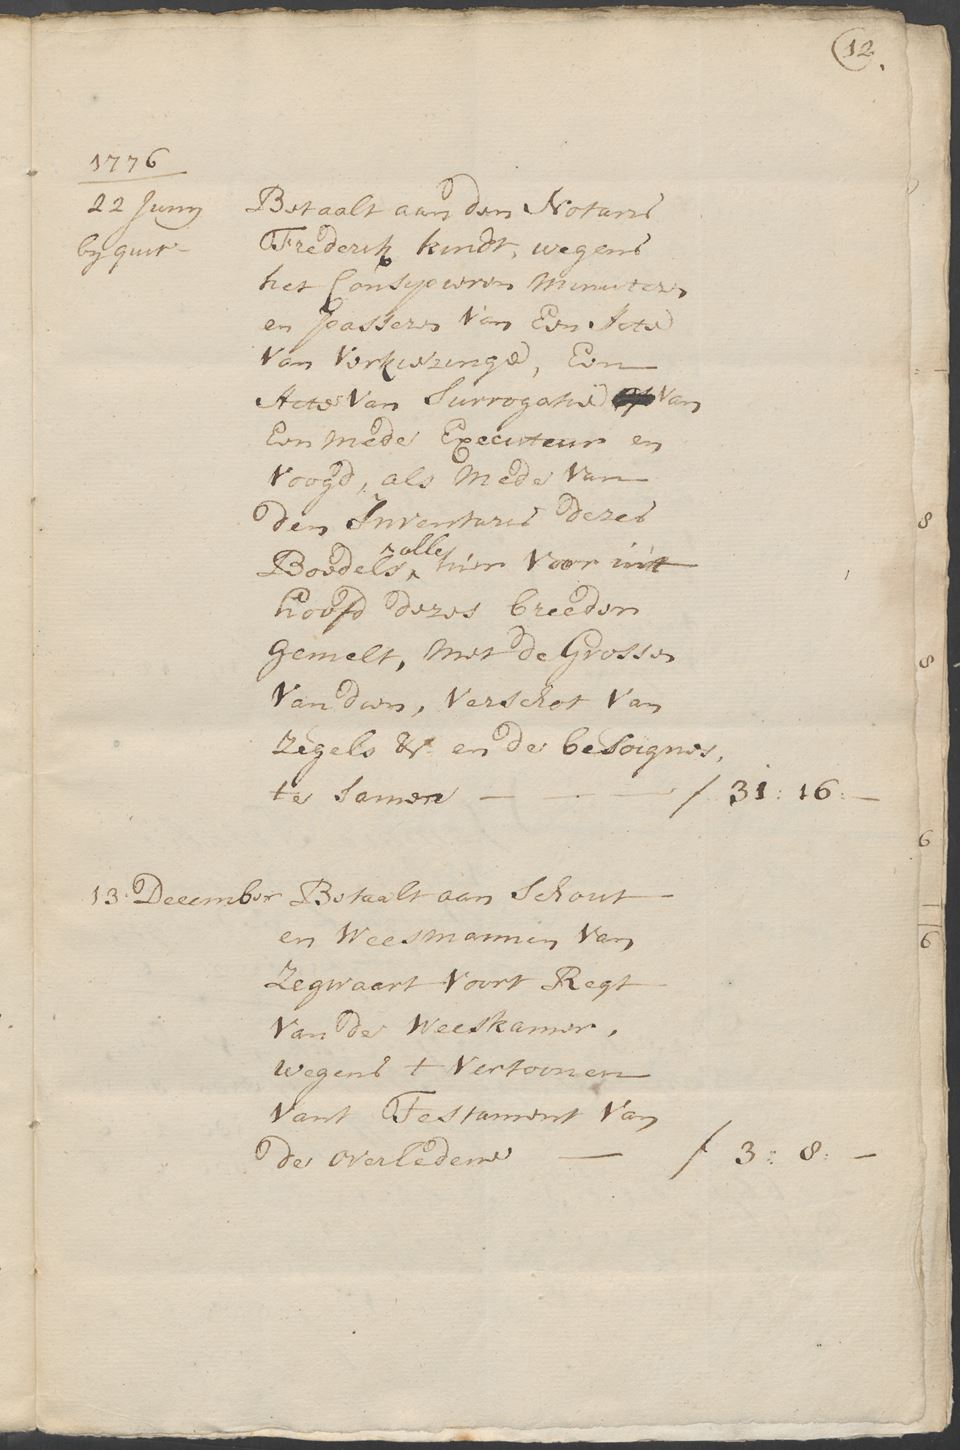 12.
1776
22 Juny Betaalt aan den Notaris
by quit: Frederik kindt, wegens
het Consipieeren Minuteeren
en passeeren Van Een Acte
Van Verkiezinge, Een
Acte Van Surrogatie Van
Een mede Executeur en
Voogd, als Mede Van
den Inventaris dezes
Boedels, alle hier Voor int
hoofd dezes breeder
gemelt, Met de Grossen
Van dien, Verschot Van
Zegels &c. en de besoignes,
te samen — f 31: 16: —
13: December Betaalt aan Schout
en Weesmannen Van
Zegwaert Voort Regt
Van de Weeskamer,
wegens t Vertoonen
Vant Testament Van
de overledene — f 3: 8: —
8
8
6
6